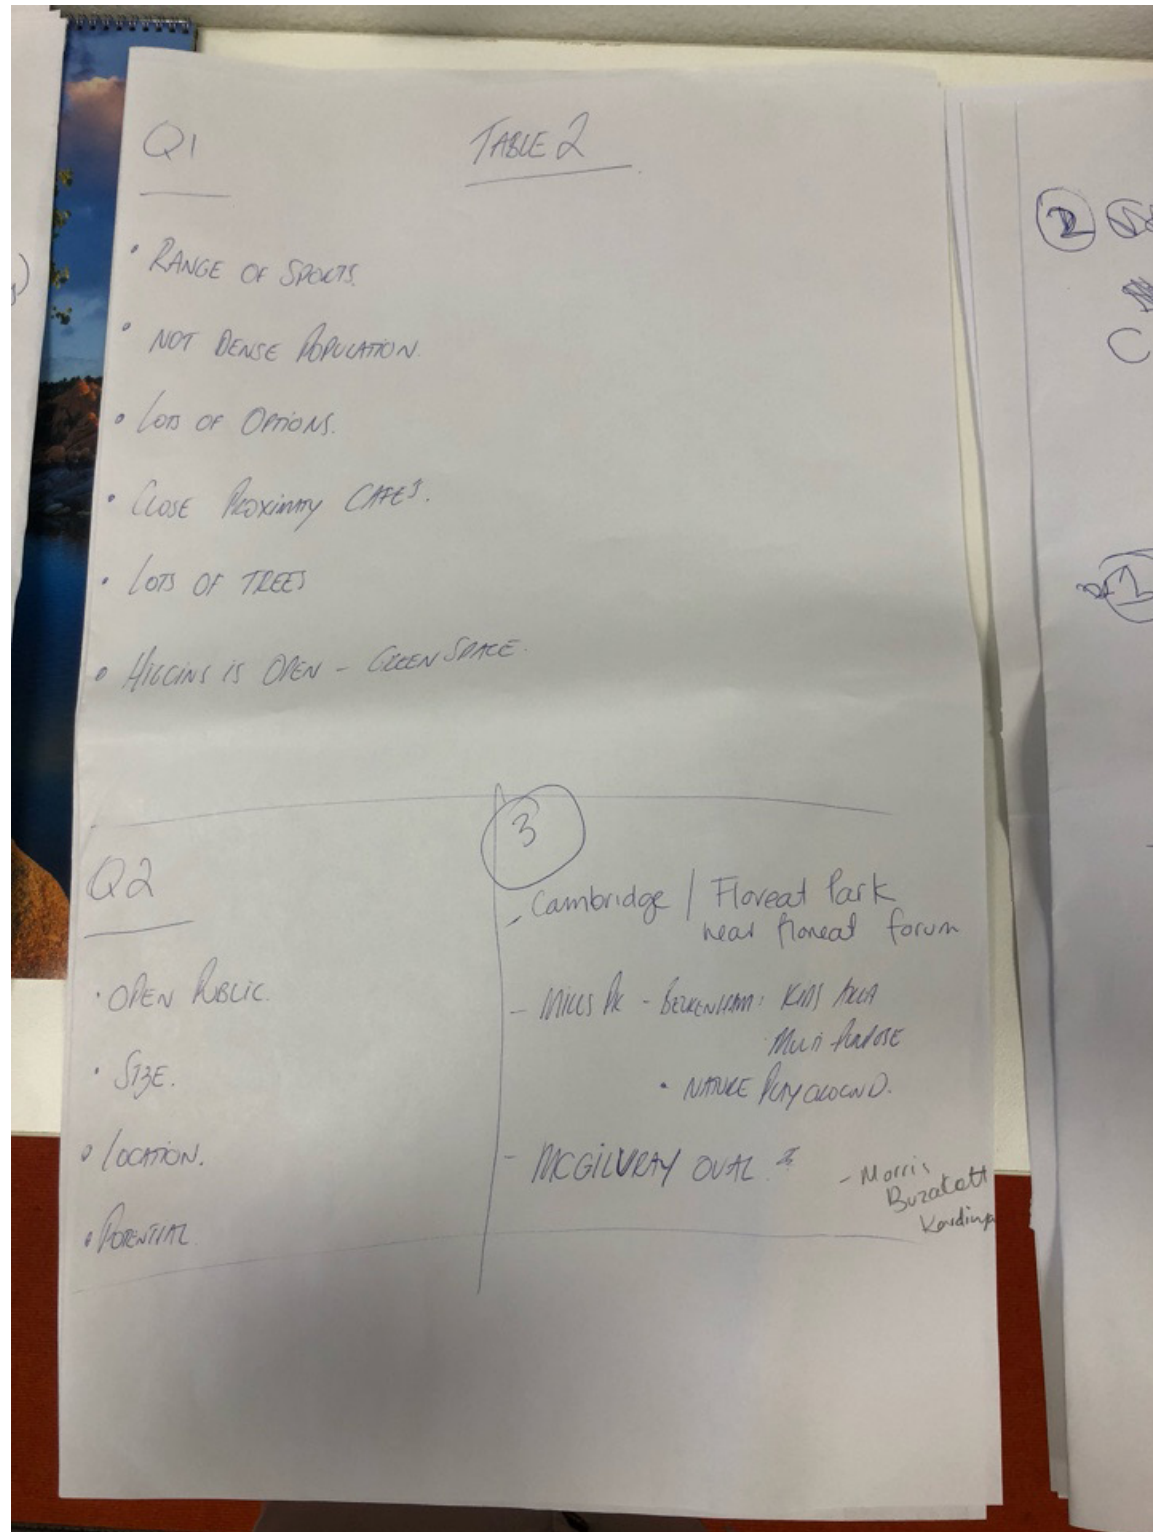 Q1
TABLE 2
• RANGE OF SPORTS.
• NOT DENSE POPULATION.
• LOTS OF OPTIONS.
• CLOSE PROXIMITY CAFES.
• LOTS OF TREES
• HIGGINS IS OPEN - GREEN SPACE.
Q2
• OPEN PUBLIC.
• SIZE.
• LOCATION.
• POTENTIAL
3
- Cambridge / Floreat Park
near floreat forum
- MILLS PK - BECKENHAM: KIDS AREA
MULTI PURPOSE
• NATURE PLAYGROUND.
- MCGILVRAY OVAL.
- Morris
Buzacott
Kardinya
2
C
1